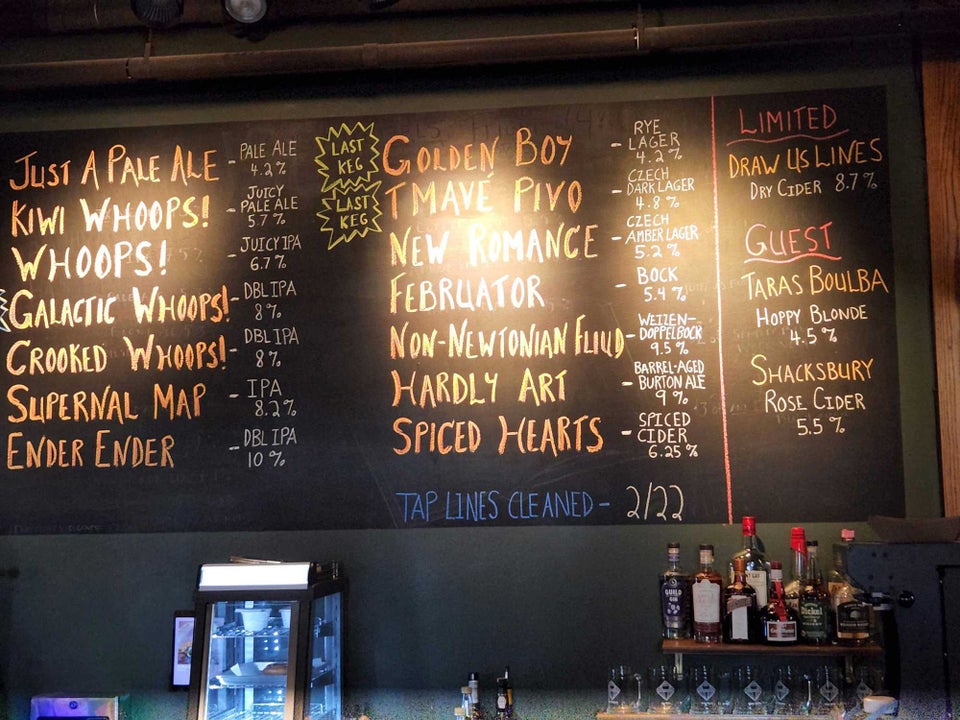 JUST A PALE ALE - PALE ALE
4.2%
KIWI WHOOPS! - JUICY
PALE ALE
5.7%
WHOOPS! - JUICY IPA
6.7%
GALACTIC WHOOPS! - DBL IPA
8%
CROOKED WHOOPS! - DBL IPA
8%
SUPERNAL MAP - IPA
8.2%
ENDER ENDER - DBL IPA
10%
LAST
KEG
GOLDEN BOY - RYE
LAGER
4.2%
LAST
KEG
TMAVÉ PIVO - CZECH
DARK LAGER
4.8%
NEW ROMANCE - CZECH
AMBER LAGER
5.2%
FEBRUATOR - BOCK
5.4%
NON-NEWTONIAN FLIUD - WEIZEN-
DOPPELBOCK
9.5%
HARDLY ART - BARREL-AGED
BURTON ALE
9%
SPICED HEARTS - SPICED
CIDER
6.25%
TAP LINES CLEANED - 2/22
LIMITED
DRAW US LINES
DRY CIDER 8.7%
GUEST
TARAS BOULBA
HOPPY BLONDE
4.5%
SHACKSBURY
ROSE CIDER
5.5%
GUILD
GIN
Dickel